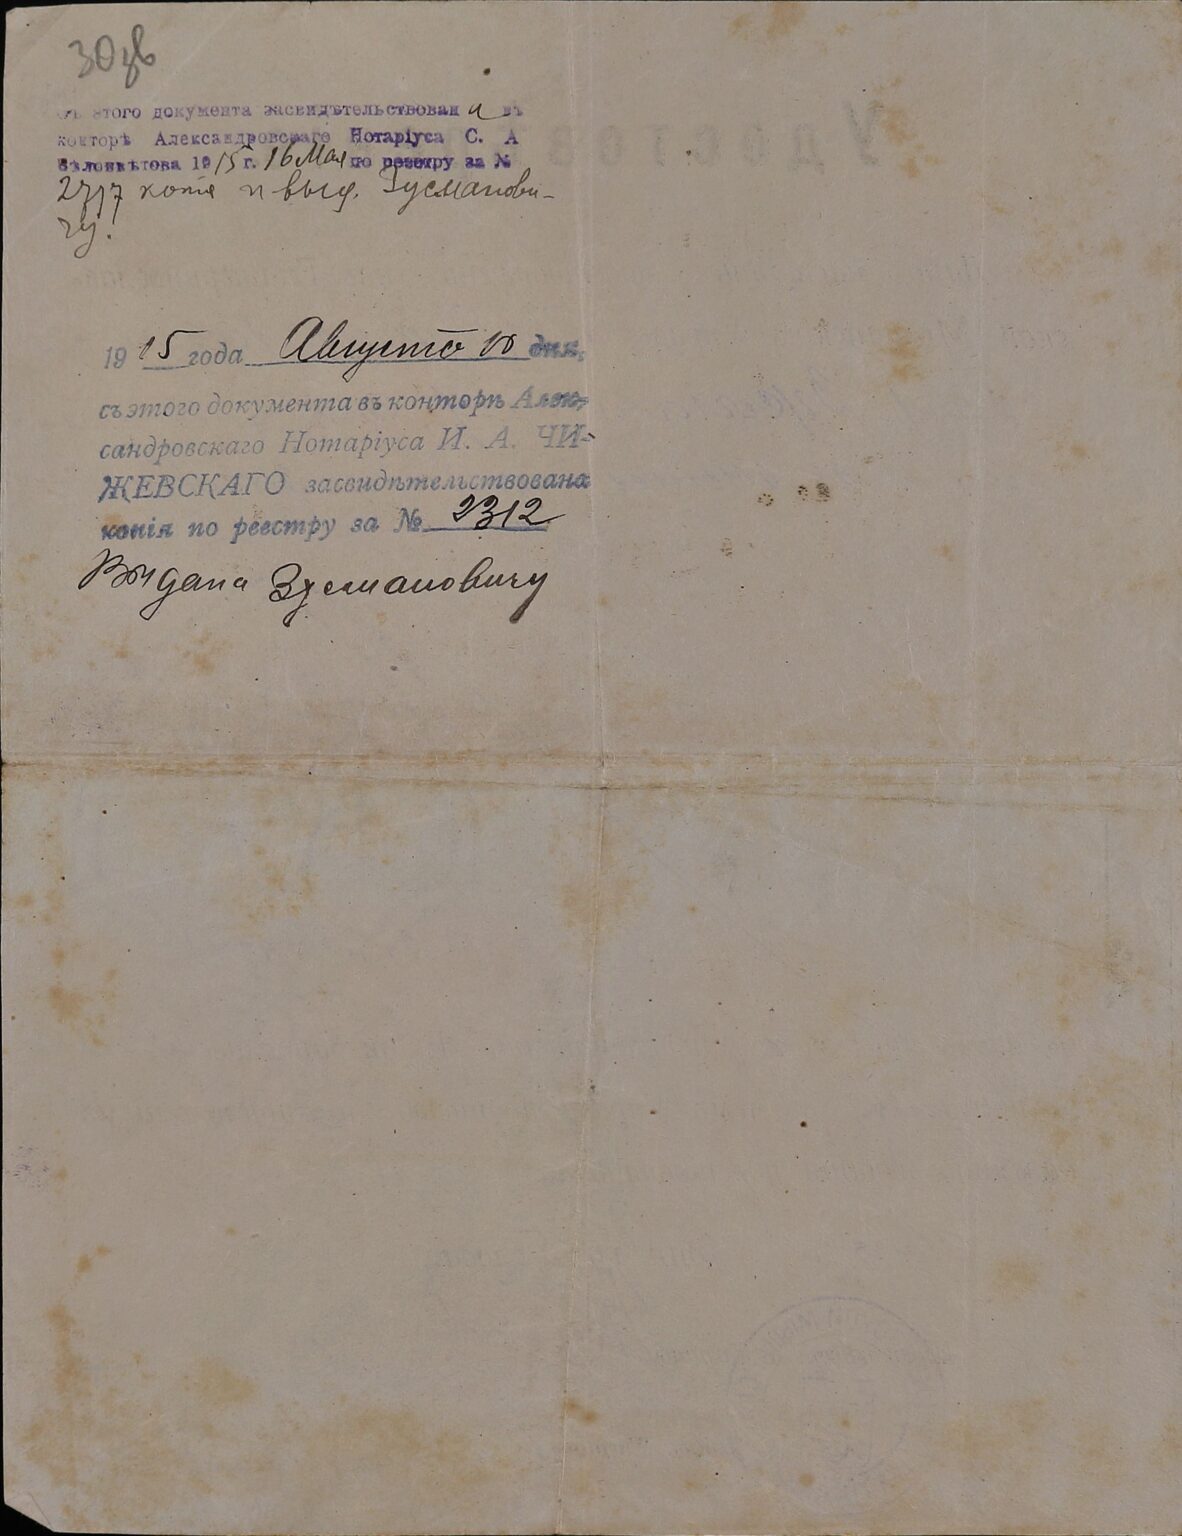 30 зв
Съ этого документа засвидѣтельствована въ
конторѣ Александровскаго Нотаріуса С. А
Бѣлоцвѣтова 1915 г. 16 Мая по реестру за №
2777 копія и выд. Зусманови-
чу.
1915 года Августа 10 дня,
съ этого документа въ конторѣ Алек-
сандровскаго Нотаріуса И. А. ЧИ-
ЖЕВСКАГО засвидѣтельствована
копія по реестру за № 2312
Выдана Зусмановичу